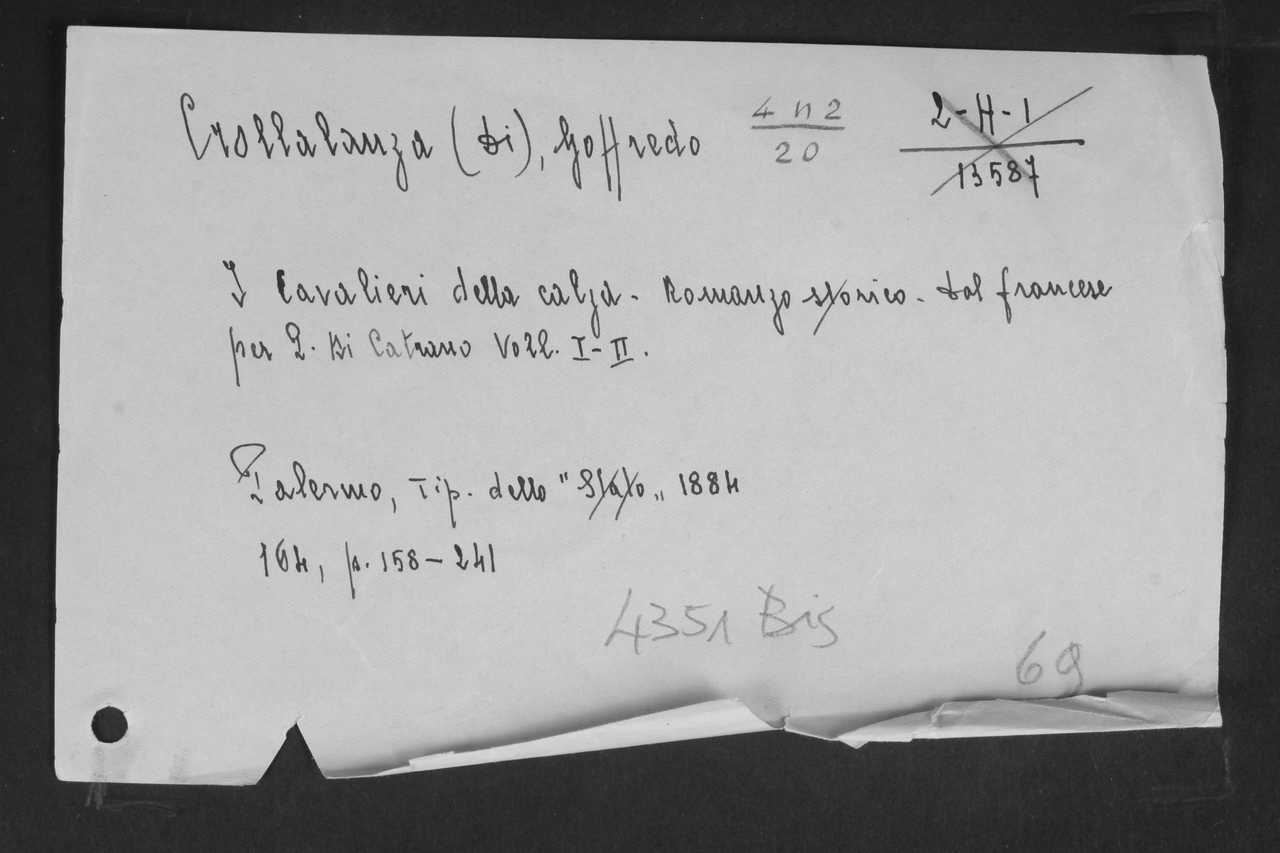 Crollalanza (Di), Goffredo
4 n 2
20
2-H-1
13587
I Cavalieri della calza - Romanzo storico - Dal francese
per L. Di Catrano Voll. I-II.
Palermo, Tip. dello "Stato„ 1884
164, p. 158-241
4351 Bis
69